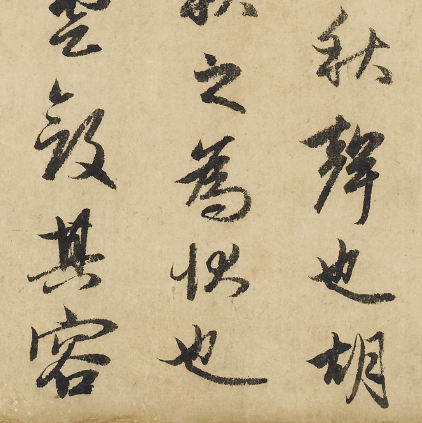 秋聲也胡
秋之為狀也
雲斂其容